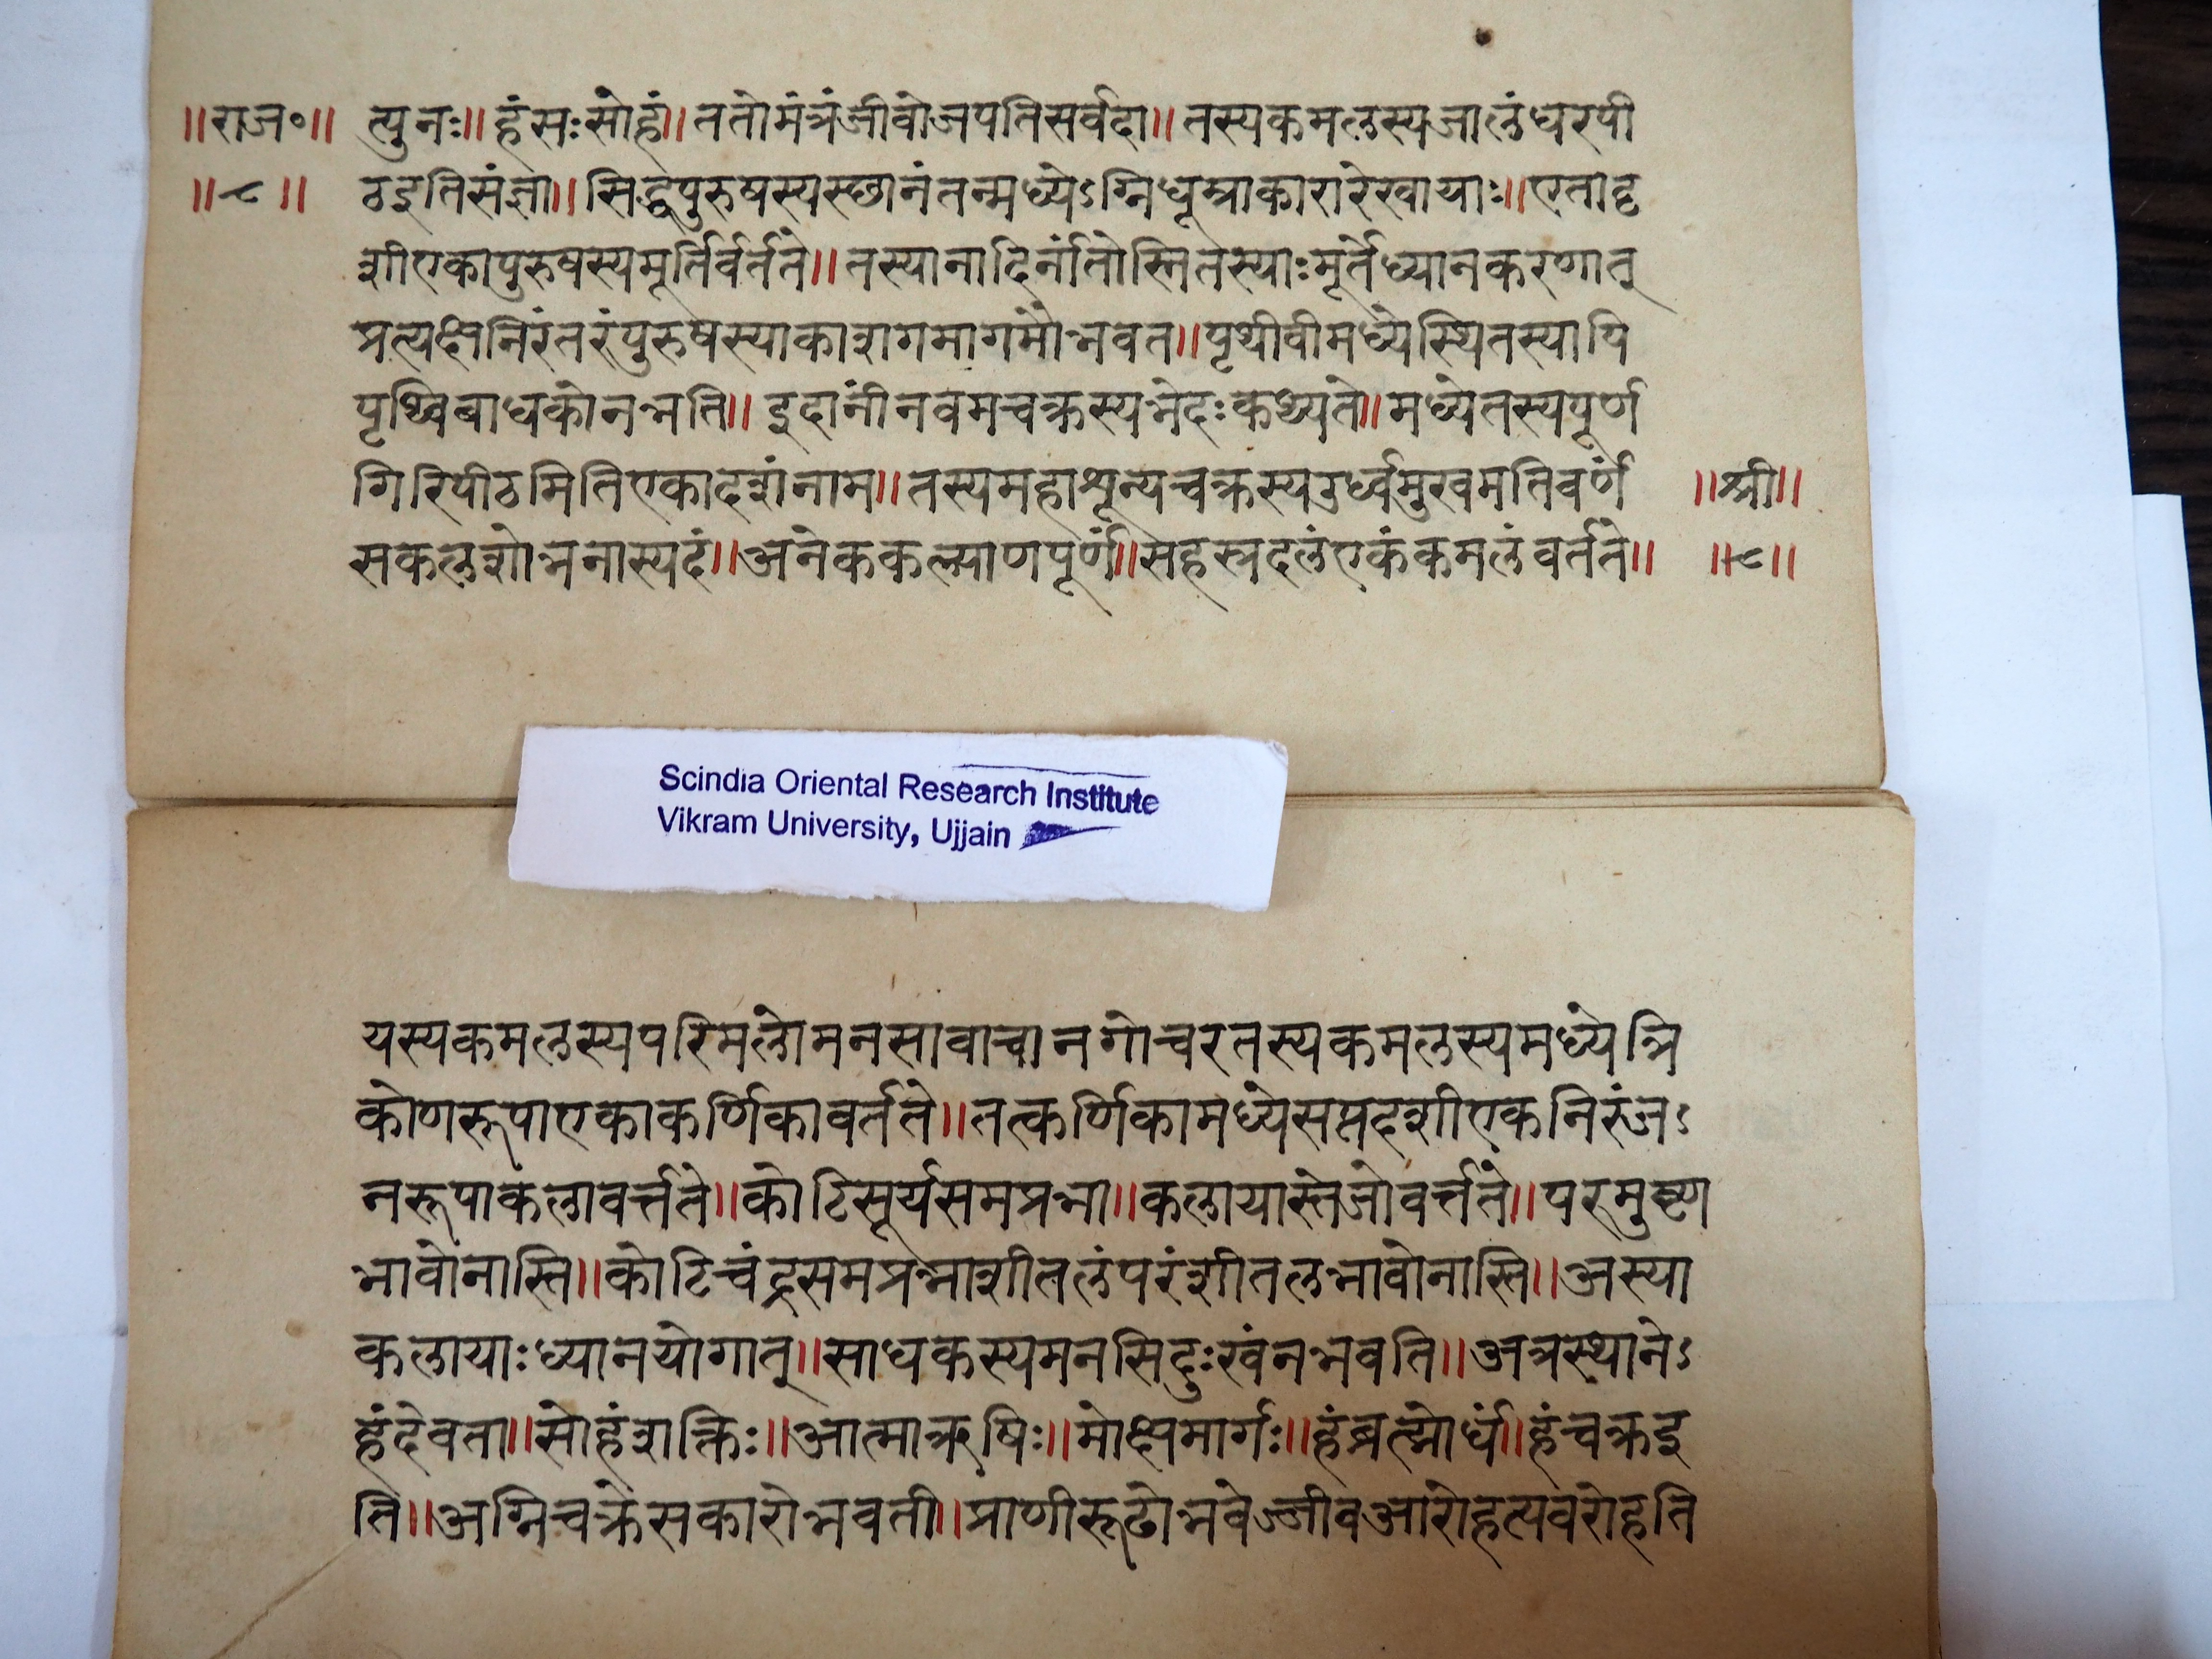 ॥राज॰॥ त्पुनः॥ हंसःसोहं॥ ततोमंत्रंजीवोजपतिसर्वदा॥ तस्यकमलस्यजालंधरपी
॥८॥ ठइतिसंज्ञा॥ सिद्धपुरुषस्यस्छानंतन्मध्येऽग्निधूम्राकारारेखायाः॥एतादृ
शीएकापुरुषस्यमूर्तिर्वर्तते॥ तस्यानादिर्नांतोस्तितस्याःमूर्तेध्यानकरणात्
प्रत्यक्षंनिरंतरंपुरुषस्याकाशगमागमोभवत॥पृथीवीमध्येस्थितस्यापि
पृथ्विबाधकोनभति॥ इदानींनवमचक्रस्यभेदःकथ्यते॥ मध्येतस्यपूर्ण
गिरिपीठमितिएकादशंनाम॥ तस्यमहाशून्यचक्रस्यउर्ध्वमुखमतिवर्णं ॥श्री॥
सकलशोभनास्यदं॥अनेककल्याणपूर्णं॥सहस्त्रदलंएकंकमलंवर्तते॥ ॥८॥
Scindia Oriental Research Institute
Vikram University, Ujjain
यस्यकमलस्यपरिमलोमनसावाचानगोचरतस्यकमलस्यमध्येत्रि
कोणरूपाएकाकर्णिकावर्तते॥तत्कर्णिकामध्येसप्तदशीएकनिरंजऽ
नरूपाकलावर्त्तते॥कोटिसूर्यसमप्रभा॥कलायास्तेजोवर्त्तते॥परमुष्ण
भावोनास्ति॥कोटिचंद्रसमप्रभाशीतलंपरंशीतलभावोनास्ति॥अस्या
कलायाःध्यानयोगात्॥साधकस्यमनसिदुःखंनभवति॥अत्रस्थानेऽ
हंदेवता॥सोहंशक्तिः॥आत्माऋषिः॥मोक्षमार्गः॥हंब्रत्मोर्धं॥हंचक्रइ
ति॥अग्निचक्रेसकारोभवती॥प्राणीरूढोभवेज्जीवआरोहत्यवरोहति